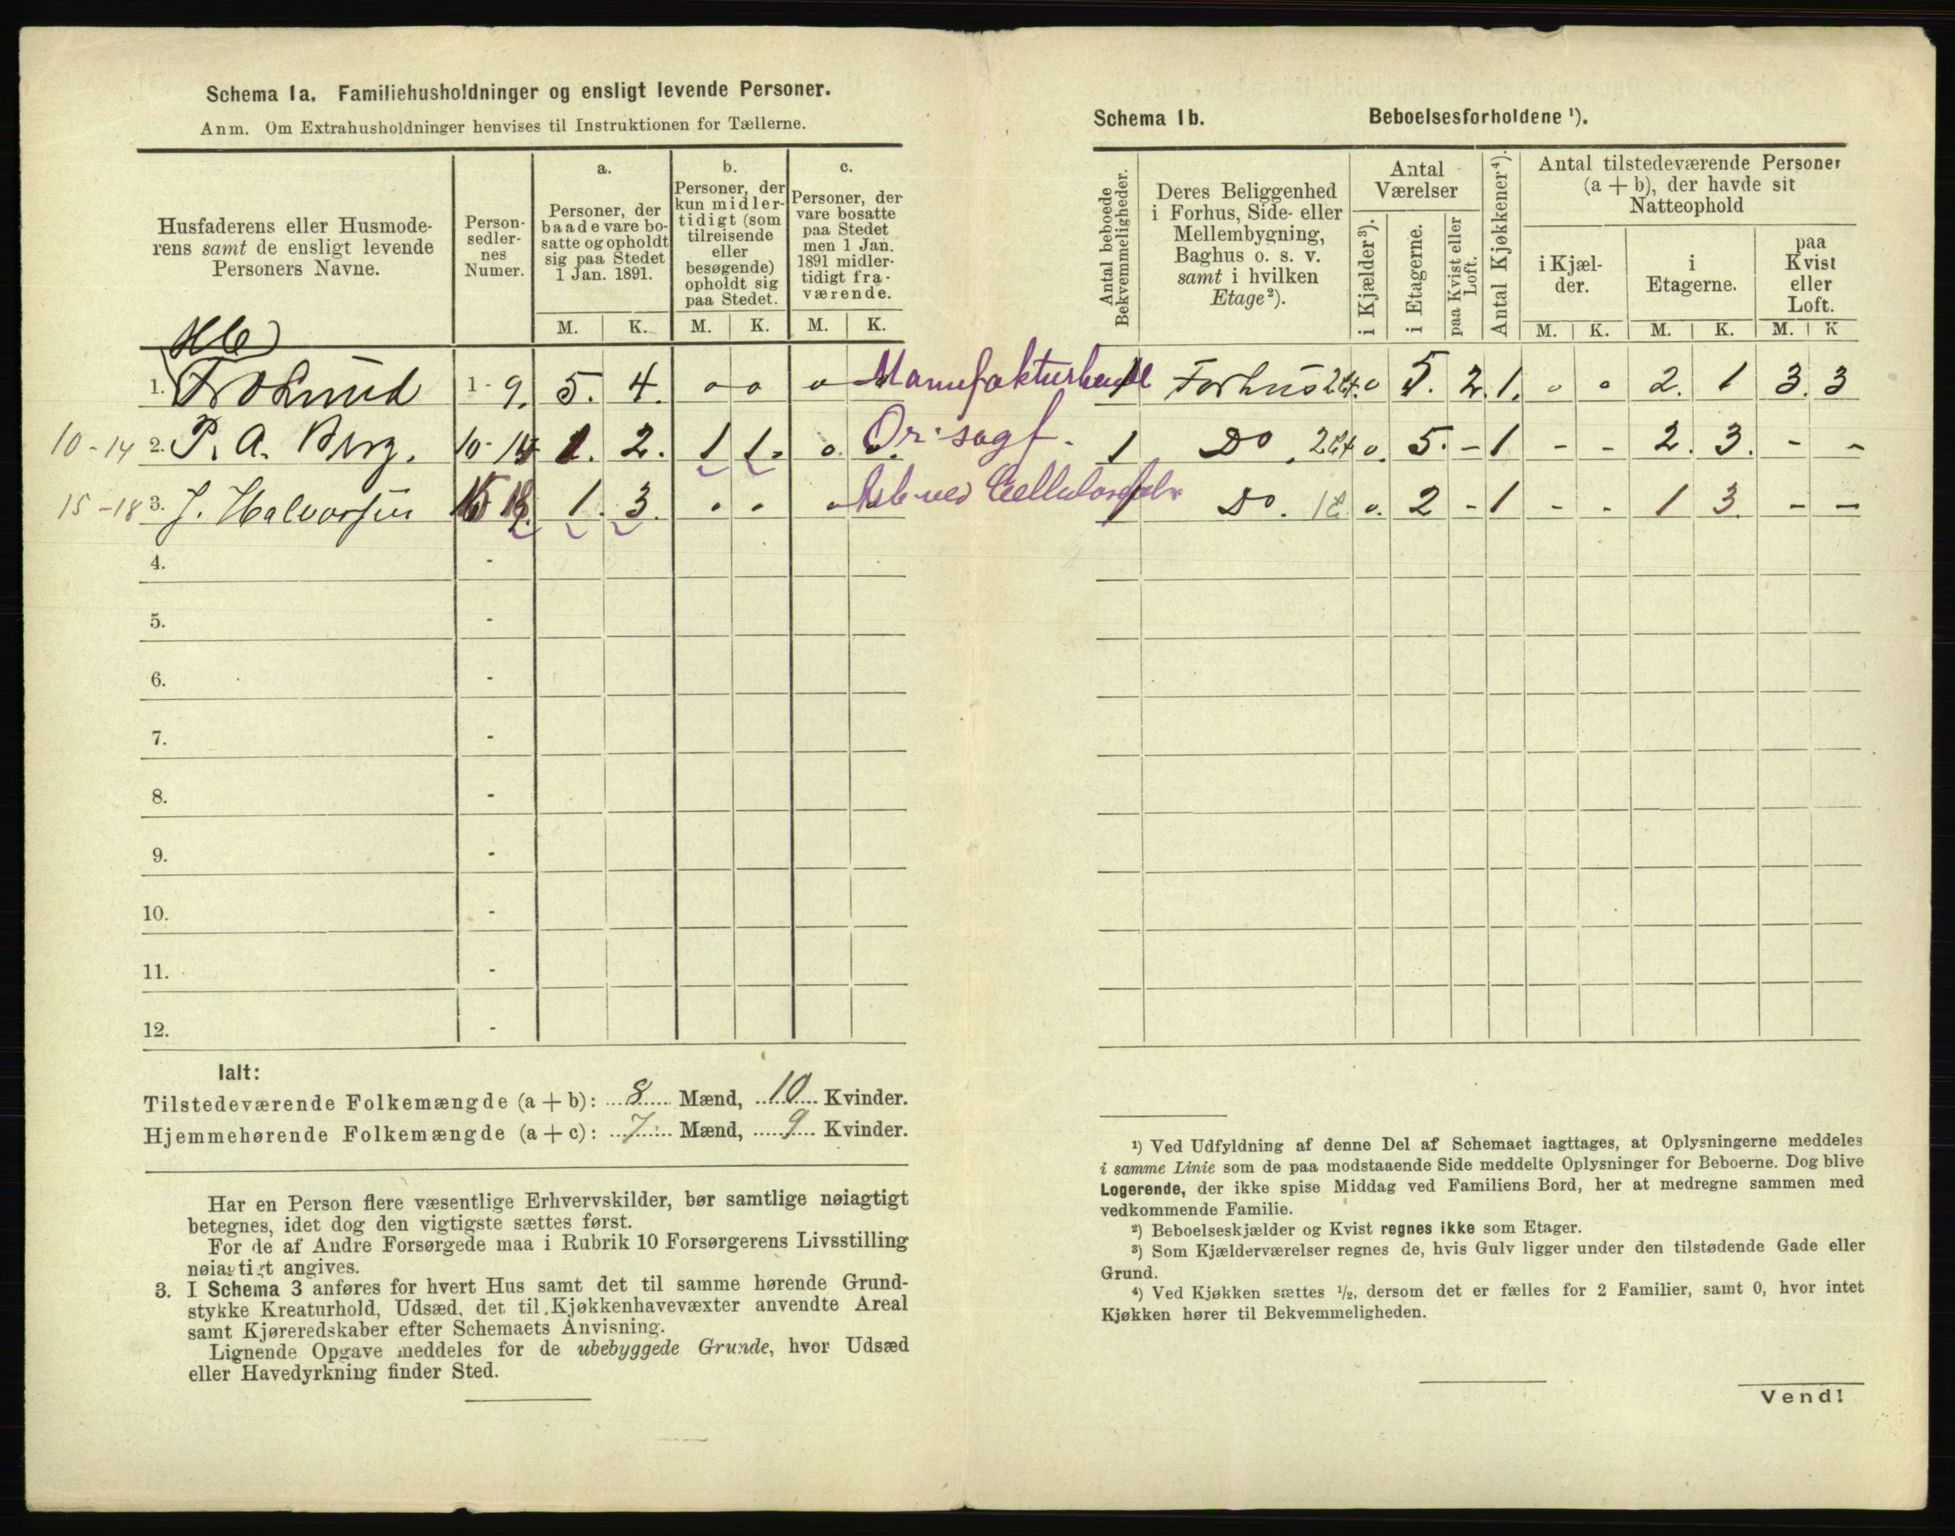 Schema 1a. Familiehusholdninger og ensligt levende Personer.
Anm. Om Extrahusholdninger henvises til Instruktionen for Tællerne.
Husfaderens eller Husmode-
rens samt de ensligt levende
Personers Navne.
Person-
sedler-
nes
Numer.
a.
Personer, der
baade vare bo-
satte og opholdt
sig paa Stedet
1 Jan. 1891.
b.
Personer, der
kun midler-
tidigt (som
tilreisende
eller
besøgende)
opholdt sig
paa Stedet.
c.
Personer, der
vare bosatte
paa Stedet
men 1 Jan.
1891 midler-
tidigt fra-
værende.
M. K. M. K. M. K.
1. 1 - 9. 5. 4. o o o Manufakturhandl
10-14 2. P. A. Berg. 10-14 1. 2. 1 1. o.
15-18 3. J. Halvorsen 1. 3.
4. -
5. -
6. -
7. -
8. -
9. -
10. -
11. -
12. -
Ialt:
Tilstedeværende Folkemængde (a + b): 8 Mænd, 10 Kvinder.
Hjemmehørende Folkemængde (a + c): 7 Mænd, 9 Kvinder.
Har en Person flere væsentlige Erhvervskilder, bør samtlige nøiagtigt
betegnes, idet dog den vigtigste sættes først.
For de af Andre Forsørgede maa i Rubrik 10 Forsørgerens Livsstilling
nøiagtigt angives.
3. I Schema 3 anføres for hvert Hus samt det til samme hørende Grund-
stykke Kreaturhold, Udsæd, det til Kjøkkenhavevæxter anvendte Areal
samt Kjøreredskaber efter Schemaets Anvisning.
Lignende Opgave meddeles for de ubebyggede Grunde, hvor Udsæd
eller Havedyrkning finder Sted.
Schema 1b. Beboelsesforholdene ¹).
Antal beboede
Bekvemmeligheder.
Deres Beliggenhed
i Forhus, Side- eller
Mellembygning,
Baghus o. s. v.
samt i hvilken
Etage²).
Antal
Værelser
i Kjælder³).
i Etagerne.
paa Kvist eller
Loft.
Antal Kjøkkener⁴).
Antal tilstedeværende Personer
(a + b), der havde sit
Natteophold
i Kjæl-
der.
i
Etagerne.
paa
Kvist
eller
Loft.
M. K. M. K. M. K
1 Forhus o 5. 2. 1. o o 2. 1 3. 3
1 Do. o. 5. - 1 - - 2. 3. - -
1 Do. o. 2 - 1 - - 1 3. - -
¹) Ved Udfyldning af denne Del af Schemaet iagttages, at Oplysningerne meddeles
i samme Linie som de paa modstaaende Side meddelte Oplysninger for Beboerne. Dog blive
Logerende, der ikke spise Middag ved Familiens Bord, her at medregne sammen med
vedkommende Familie.
²) Beboelseskjælder og Kvist regnes ikke som Etager.
³) Som Kjælderværelser regnes de, hvis Gulv ligger under den tilstødende Gade eller
Grund.
⁴) Ved Kjøkken sættes ½, dersom det er fælles for 2 Familier, samt 0, hvor intet
Kjøkken hører til Bekvemmeligheden.
Vend!